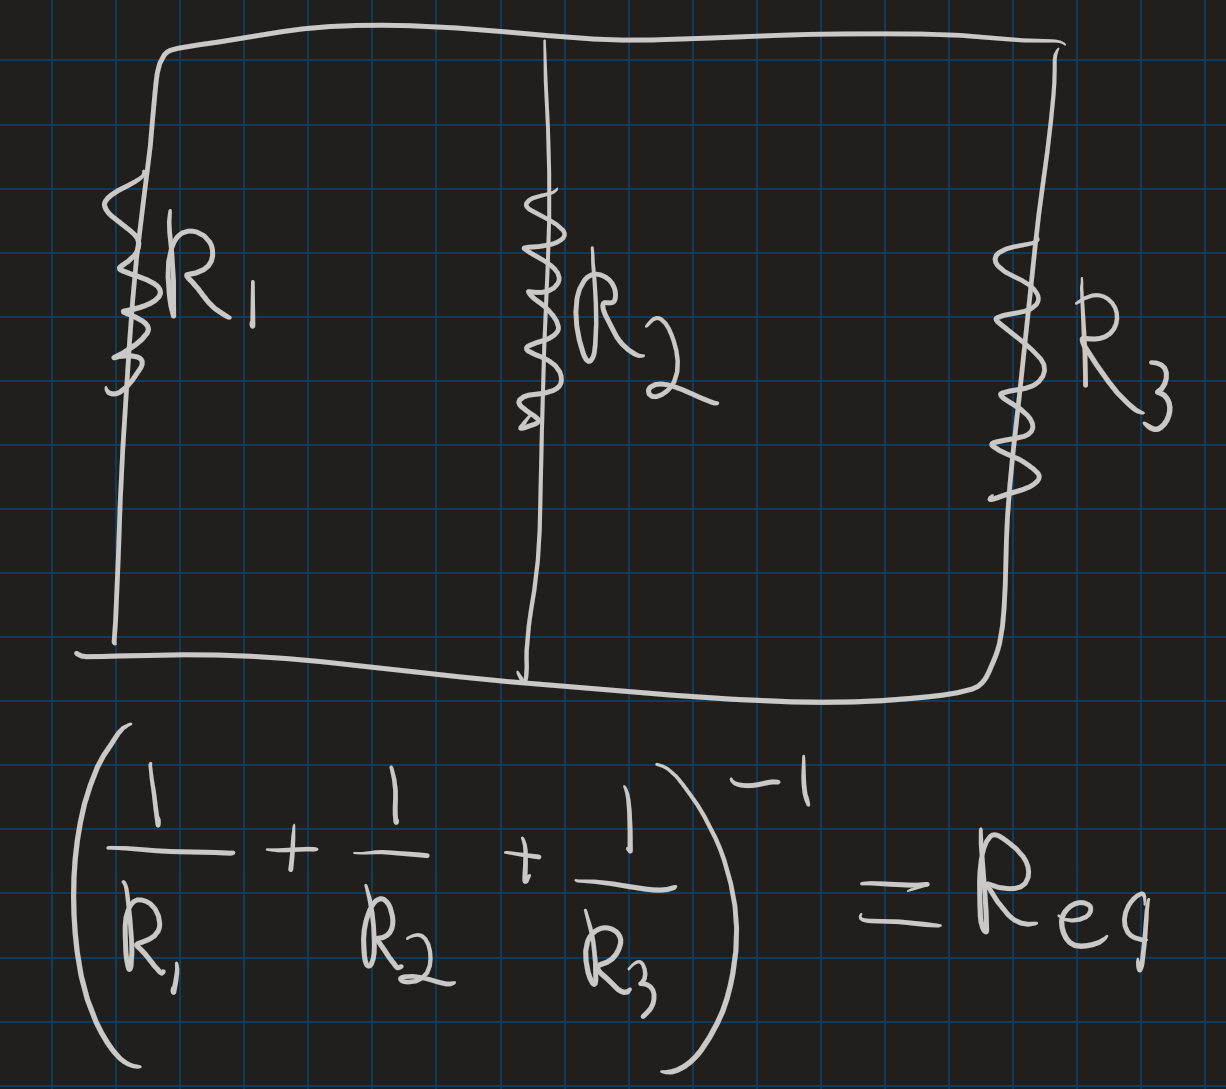 R₁
R₂
R₃
(1/R₁ + 1/R₂ + 1/R₃)⁻¹ = Req